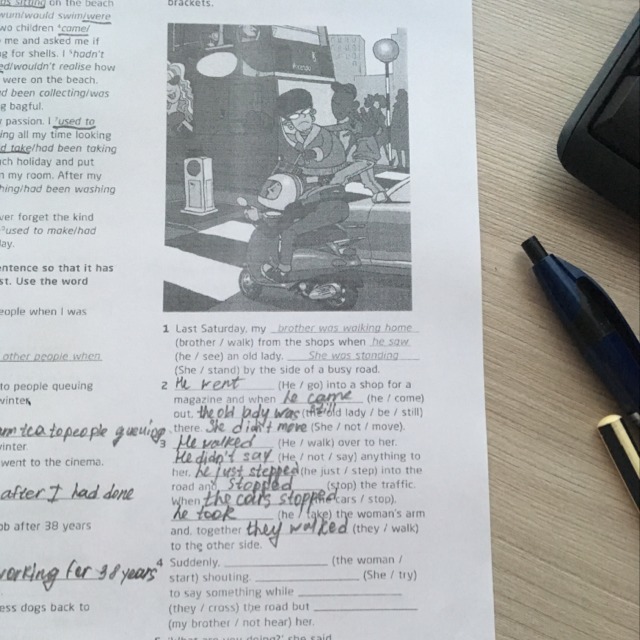 as sitting on the beach
swum/would swim/were
two children ⁴came/
me and asked me if
g for shells. I ⁵hadn't
ed/wouldn't realise how
were on the beach.
d been collecting/was
g bagful.
passion. I ⁷used to
ing all my time looking
d take/had been taking
ch holiday and put
n my room. After my
hing/had been washing
ver forget the kind
used to make/had
ay.
entence so that it has
st. Use the word
eople when I was
other people when
to people queuing
winter.
am tea to people queuing
inter.
went to the cinema.
after I had done
ob after 38 years
working for 38 years
ess dogs back to
brackets.
1 Last Saturday, my brother was walking home
(brother / walk) from the shops when he saw
(he / see) an old lady. She was standing
(She / stand) by the side of a busy road.
2 He went (He / go) into a shop for a
magazine and when he came (he / come)
out, the old lady was still (the old lady / be / still)
there. She didn't move (She / not / move).
3 He walked (He / walk) over to her.
He didn't say (He / not / say) anything to
her, he just stepped (he just / step) into the
road and stopped (stop) the traffic.
When the cars stopped (the cars / stop),
he took (he / take) the woman's arm
and, together they walked (they / walk)
to the other side.
4 Suddenly, (the woman /
start) shouting. (She / try)
to say something while
(they / cross) the road but
(my brother / not hear) her.
5 'What are you doing?' she said